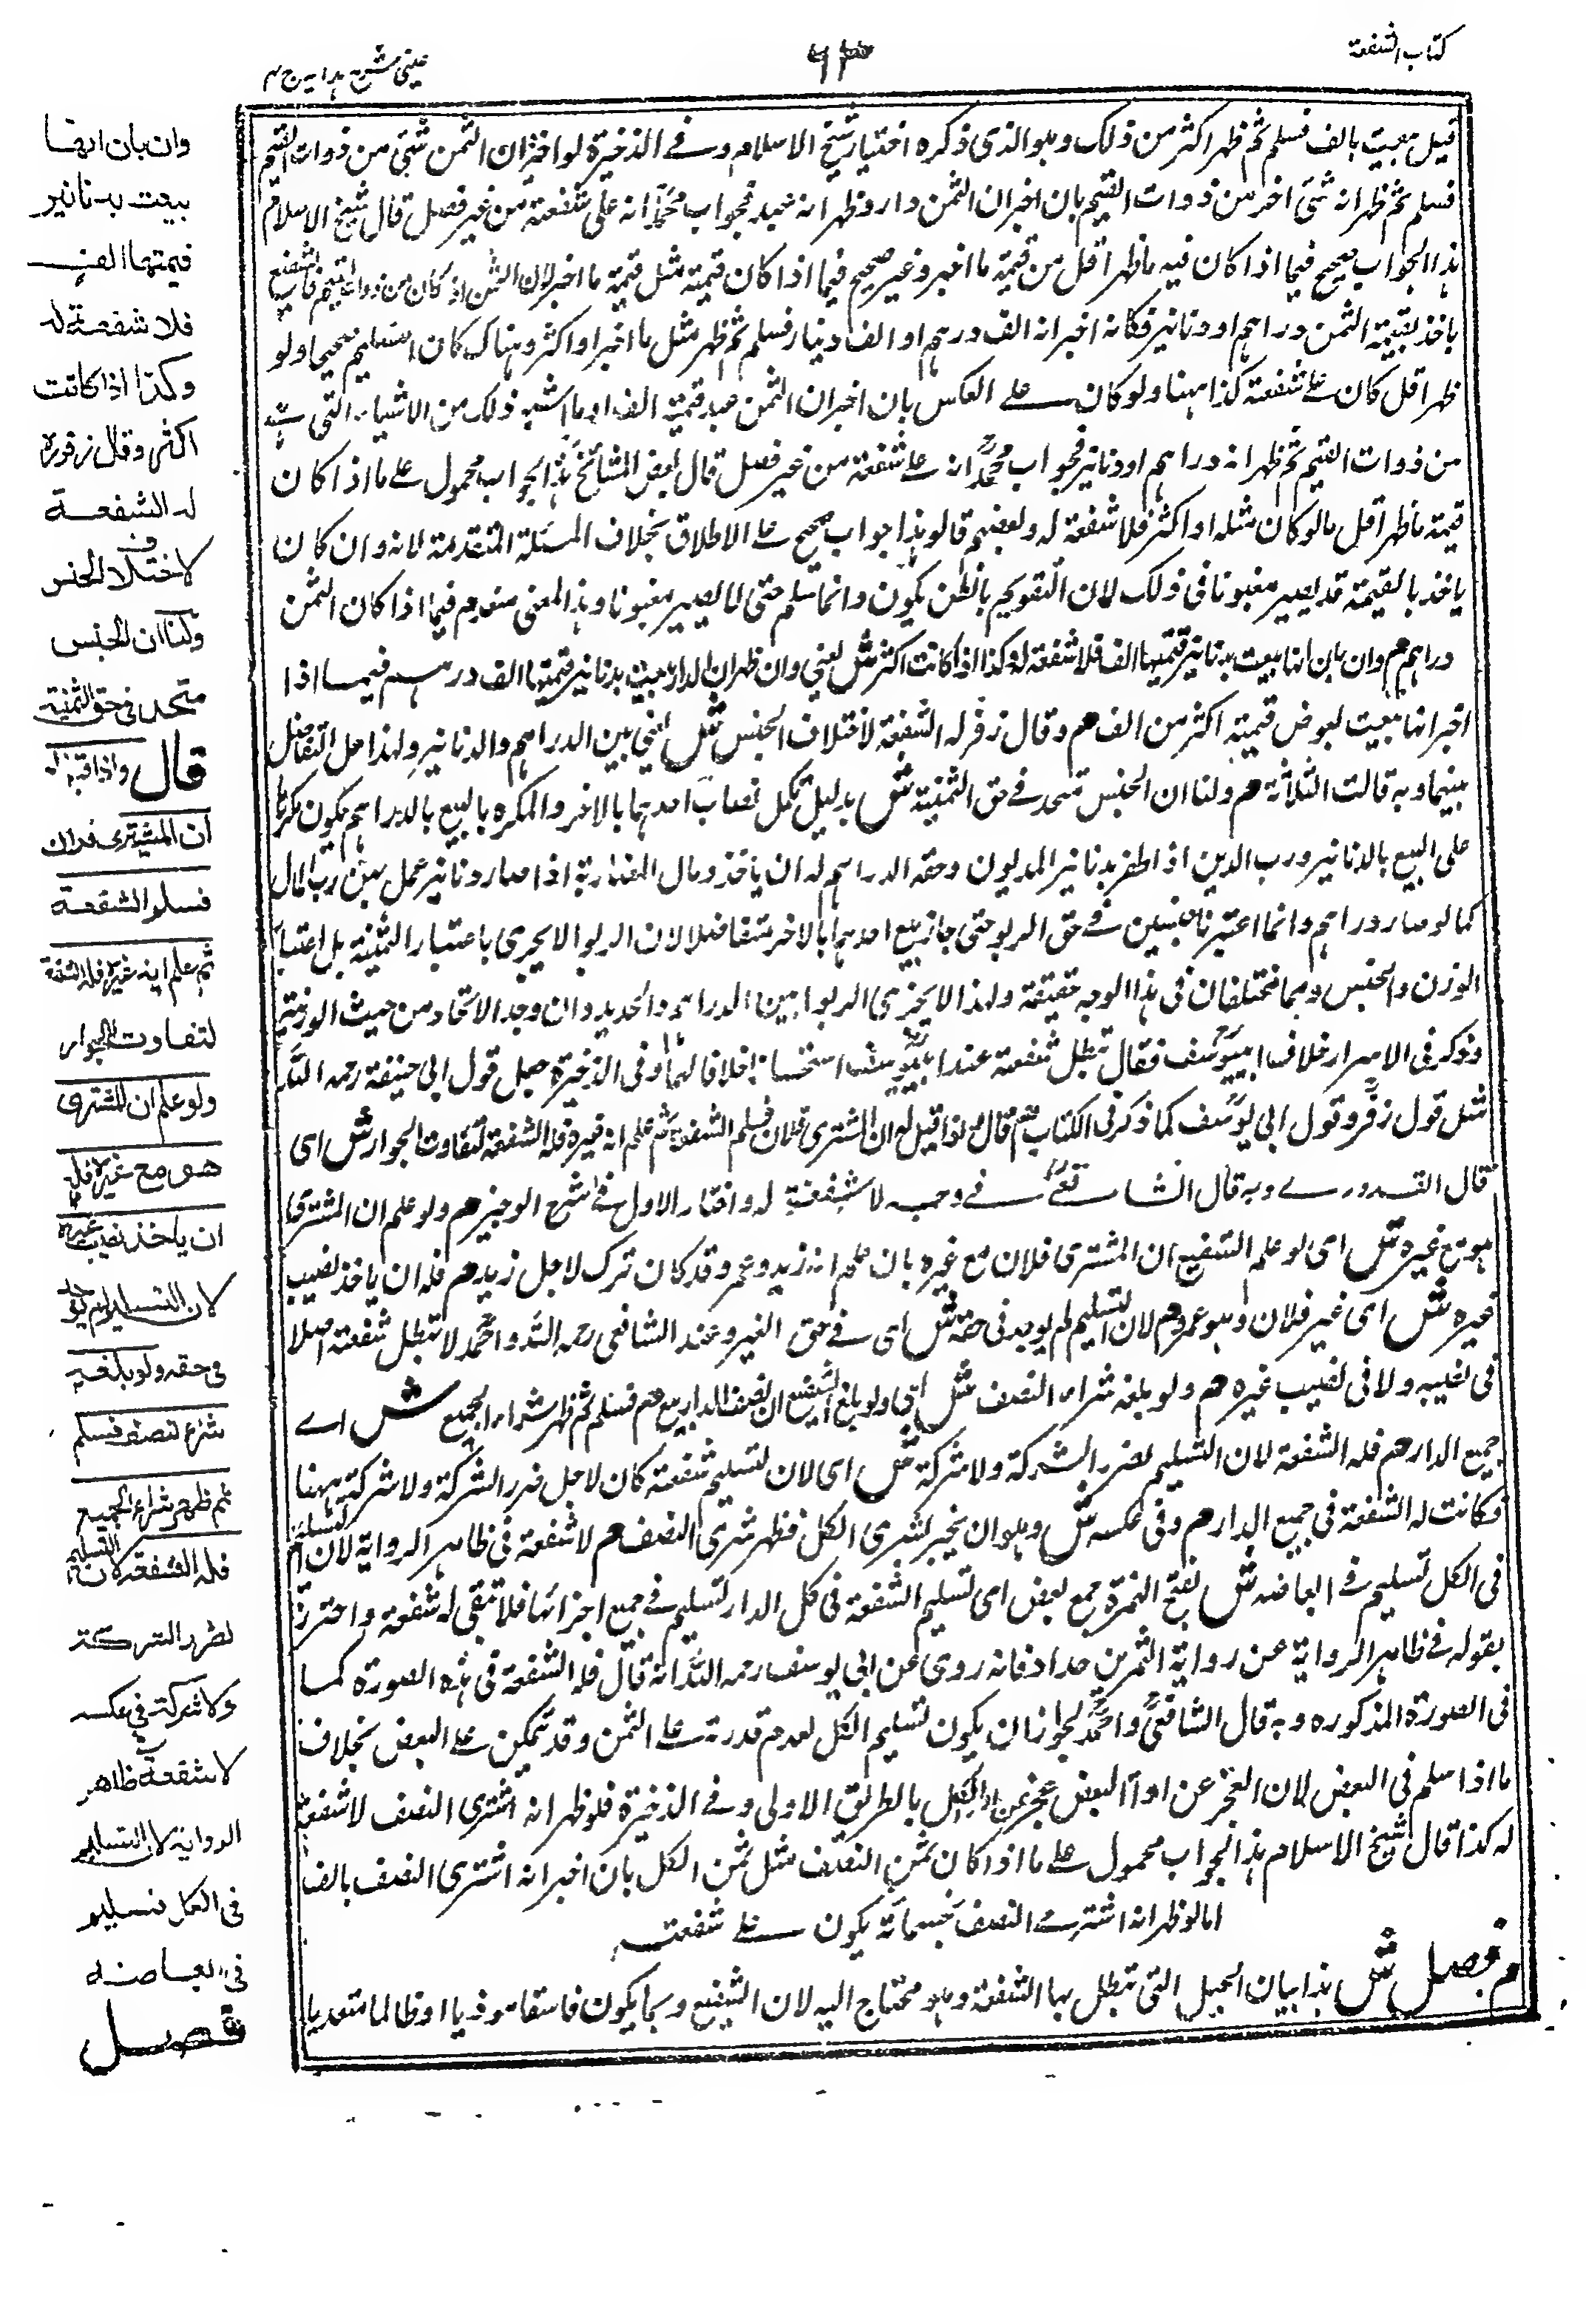 كتاب الشفعة
٦٣
عينى شرح هداية ج ٣
قيل بيعت بالف فسلم ثم ظهر اكثر من ذلك وهو الذى ذكره اختيار شيخ الاسلام وفے الذخيرة لو اخبر ان الثمن شئ من ذوات القيم
فسلم ثم ظهر انه شئ اخر من ذوات القيم بان اخبر ان الثمن دار وظهر انه عبد فجواب محمدؒ انه على شفعته من غير فصل قال شيخ الاسلام
هذا الجواب صحيح فيما اذا كان فيه ما ظهر اقل من قيمة ما اخبر وغير صحيح فيما اذا كان قيمته مثل قيمة ما اخبر لان الثمن اذ كان من ذوات القيم فالشفيع
ياخذ بقيمة الثمن دراهم او دنانير فكانه اخبر انه الف درهم او الف دينار فسلم ثم ظهر مثل ما اخبر او اكثر وهناك كان التسليم صحيحا ولو
ظهر اقل كان علے شفعته كذا ههنا ولو كان علے العكس بان اخبر ان الثمن عبد قيمته الف او ما اشبه ذلك من الاشياء التى هے
من ذوات القيم ثم ظهر انه دراهم او دنانير فجواب محمدؒ انه علے شفعته من غير فصل قال بعض المشائخ هذا الجواب محمول علے ما اذا كان
قيمة ما ظهر اقل ما لو كان مثله او اكثر فلا شفعة له وبعضهم قالو هذا جواب صحيح علے الاطلاق بخلاف المسئلة المتقدمة لانه وان كان
ياخذ بالقيمة قد يصير مغبونا فى ذلك لان التقويم بالظن يكون وانما سلم حتى لا يصير مغبونا وهذا المعنى منعدم فيما اذا كان الثمن
دراهم هم وان بان انها بيعت بدنانير قيمتها الف فلا شفعة له وكذا اذا كانت اكثر ش يعنى وان ظهر ان الدار بيعت بدنانير قيمتها الف درهم فيما اذا
اخبر انها بيعت بعوض قيمته اكثر من الف هم وقال زفر له الشفعة لاختلاف الجنس ش يعنى بين الدراهم والدنانير ولهذا حل التفاضل
بينهما وبه قالت الثلاثة هم ولنا ان الجنس متحد فے حق الثمنية ش بدليل تكمل نصاب احدهما بالاخر والمكره بالبيع بالدراهم يكون مكرها
على البيع بالدنانير ورب الدين اذا ظفر بدنانير المديون وحقه الدراهم له ان ياخذ ومال المضاربة اذا صار دنانير عمل بهن رب المال
كما لو صار دراهم وانما اعتبرنا جنسين فے حق الربو حتى جاز بيع احدهما بالاخر متفاضلا لان الربو لا يجرى باعتبار الثمنية بل اعتبار
الوزن والجنس وهما مختلفان فى هذا الوجه حقيقة ولهذا لا يجرى الربوا بين الدراهم والحديد وان وجد الاتحاد من حيث الوزنية
وذكر فى الاسرار خلاف ابيیوسف فقال تبطل شفعته عند ابيیوسف استحسانا خلافا لهما وفى الذخيرة جعل قول ابى حنيفة رحمه الله
مثل قول زفرؒ وقول ابى يوسف كما ذكر فى الكتاب هم قال واذا قيل له ان المشترى فلان فسلم الشفعة ثم علم انه غيره فله الشفعة لتفاوت الجوار ش اى
قال القدورے وبه قال الشافعےؒ فے وجه لا شفعة له واختار الاول فے شرح الوجيز هم ولو علم ان المشترى
هو مع غيره ش اى لو علم الشفيع ان المشترى فلان مع غيره بان علم انه زيد وعمر وقد كان ترك لاجل زيد هم فله ان ياخذ نصيب
غيره ش اى غير فلان وهو عمرو هم لان التسليم لم يوجد فى حقه ش اى فے حق الغير وعند الشافعى رحمه الله واحمد لا تبطل شفعته اصلا
فى نصيبه ولا فى نصيب غيره هم ولو بلغه شراء النصف ش اى ولو بلغ الشفيع ان نصف الدار بيع هم فسلم ثم ظهر شراء الجميع ش اے
جميع الدار هم فله الشفعة لان التسليم لضرر الشركة ولا شركة ش اى لان تسليم شفعته كان لاجل ضرر الشركة ولا شركة ههنا
فكانت له الشفعة فى جميع الدار هم وفى عكسه ش وهو ان يخبر بشرى الكل فظهر شرى النصف هم لا شفعة فى ظاهر الرواية لان التسليم
فى الكل تسليم فے ابعاضه ش بفتح الهمزة جمع بعض اى تسليم الشفعة فى كل الدار تسليم فے جميع اجزائها فلا تبقى له شفعة واحترز
بقوله فے ظاهر الرواية عن رواية النمرين حداد فانه روى عن ابى يوسف رحمه الله انه قال فله الشفعة فى هذه الصورة كما
فى الصورة المذكوره وبه قال الشافعىؒ واحمدؒ لجواز ان يكون تسليم الكل لعدم قدرته علے الثمن وقد تمكن علے البعض بخلاف
ما اذا سلم فى البعض لان العجز عن اداء البعض عجز عن اداء الكل بالطريق الاولى وفے الذخيرة فلو ظهر انه اشترى النصف لا شفعة
له كذا قال شيخ الاسلام هذا الجواب محمول علے ما اذا كان ثمن النصف مثل ثمن الكل بان اخبر انه اشترى النصف بالف
اما لو ظهر انه اشترے النصف بخمسمائة يكون علے شفعته
م فصل ش هذا بيان الحيل التى تبطل بها الشفعة وهو محتاج اليه لان الشفيع ربما يكون فاسقا موذيا او ظالما متعديا
وان بان انها
بيعت بدنانير
قيمتها الف
فلا شفعة له
وكذا اذا كانت
اكثر وقال زفره
له الشفعة
لاختلاف الجنس
ولنا ان الجنس
متحد فى حق الثمنية
قال واذا قيل له
ان المشترى فلان
فسلم الشفعة
ثم علم انه غيره فله الشفعة
لتفاوت الجوار
ولو علم ان المشترى
هو مع غيره فله
ان ياخذ نصيب غيره
لان التسليم لم يوجد
فى حقه ولو بلغه
شراء النصف فسلم
ثم ظهر شراء الجميع
فله الشفعة لان التسليم
لضرر الشركة
ولا شركة وفي عكسه
لا شفعة فى ظاهر
الرواية لان التسليم
فى الكل تسليم
فى ابعاضه
فصل